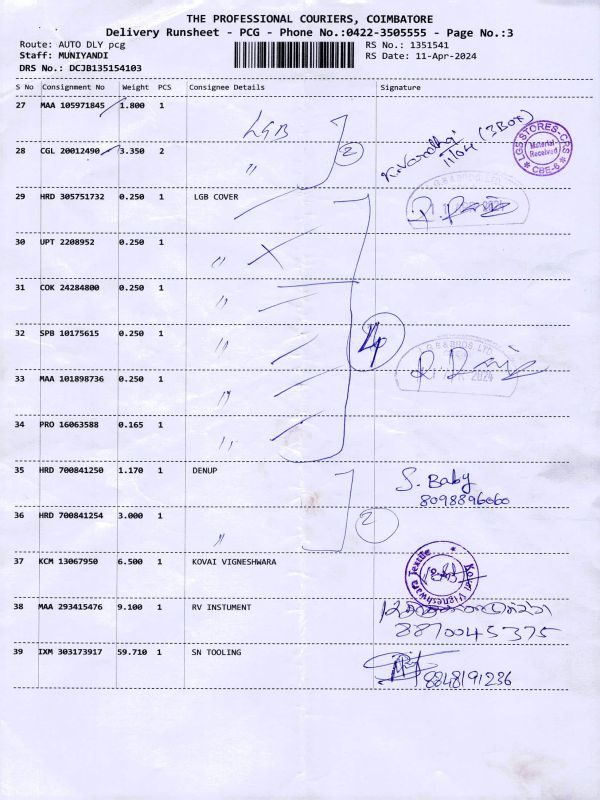 THE PROFESSIONAL COURIERS, COIMBATORE
Delivery Runsheet - PCG - Phone No.:0422-3505555 - Page No.:3
Route: AUTO DLY pcg
Staff: MUNIYANDI
DRS No.: DCJB135154103
RS No.: 1351541
RS Date: 11-Apr-2024
S No Consignment No Weight PCS Consignee Details Signature
27 MAA 105971845 1.800 1 LGB
K. Varathi 11/04 (3 Box)
LGS STORES-CRS Material Received CBE-6
28 CGL 20012490 3.350 2 〃 2
29 HRD 305751732 0.250 1 LGB COVER
30 UPT 2208952 0.250 1 〃
31 COK 24284800 0.250 1 〃
32 SPB 10175615 0.250 1 〃 4
33 MAA 101898736 0.250 1 〃
34 PRO 16063588 0.165 1 〃
35 HRD 700841250 1.170 1 DENUP S. Baby
8098896060
36 HRD 700841254 3.000 1 〃 2
37 KCM 13067950 6.500 1 KOVAI VIGNESHWARA
Kovai Vigneshwara Textile
38 MAA 293415476 9.100 1 RV INSTUMENT
8870045375
39 IXM 303173917 59.710 1 SN TOOLING
8848191236